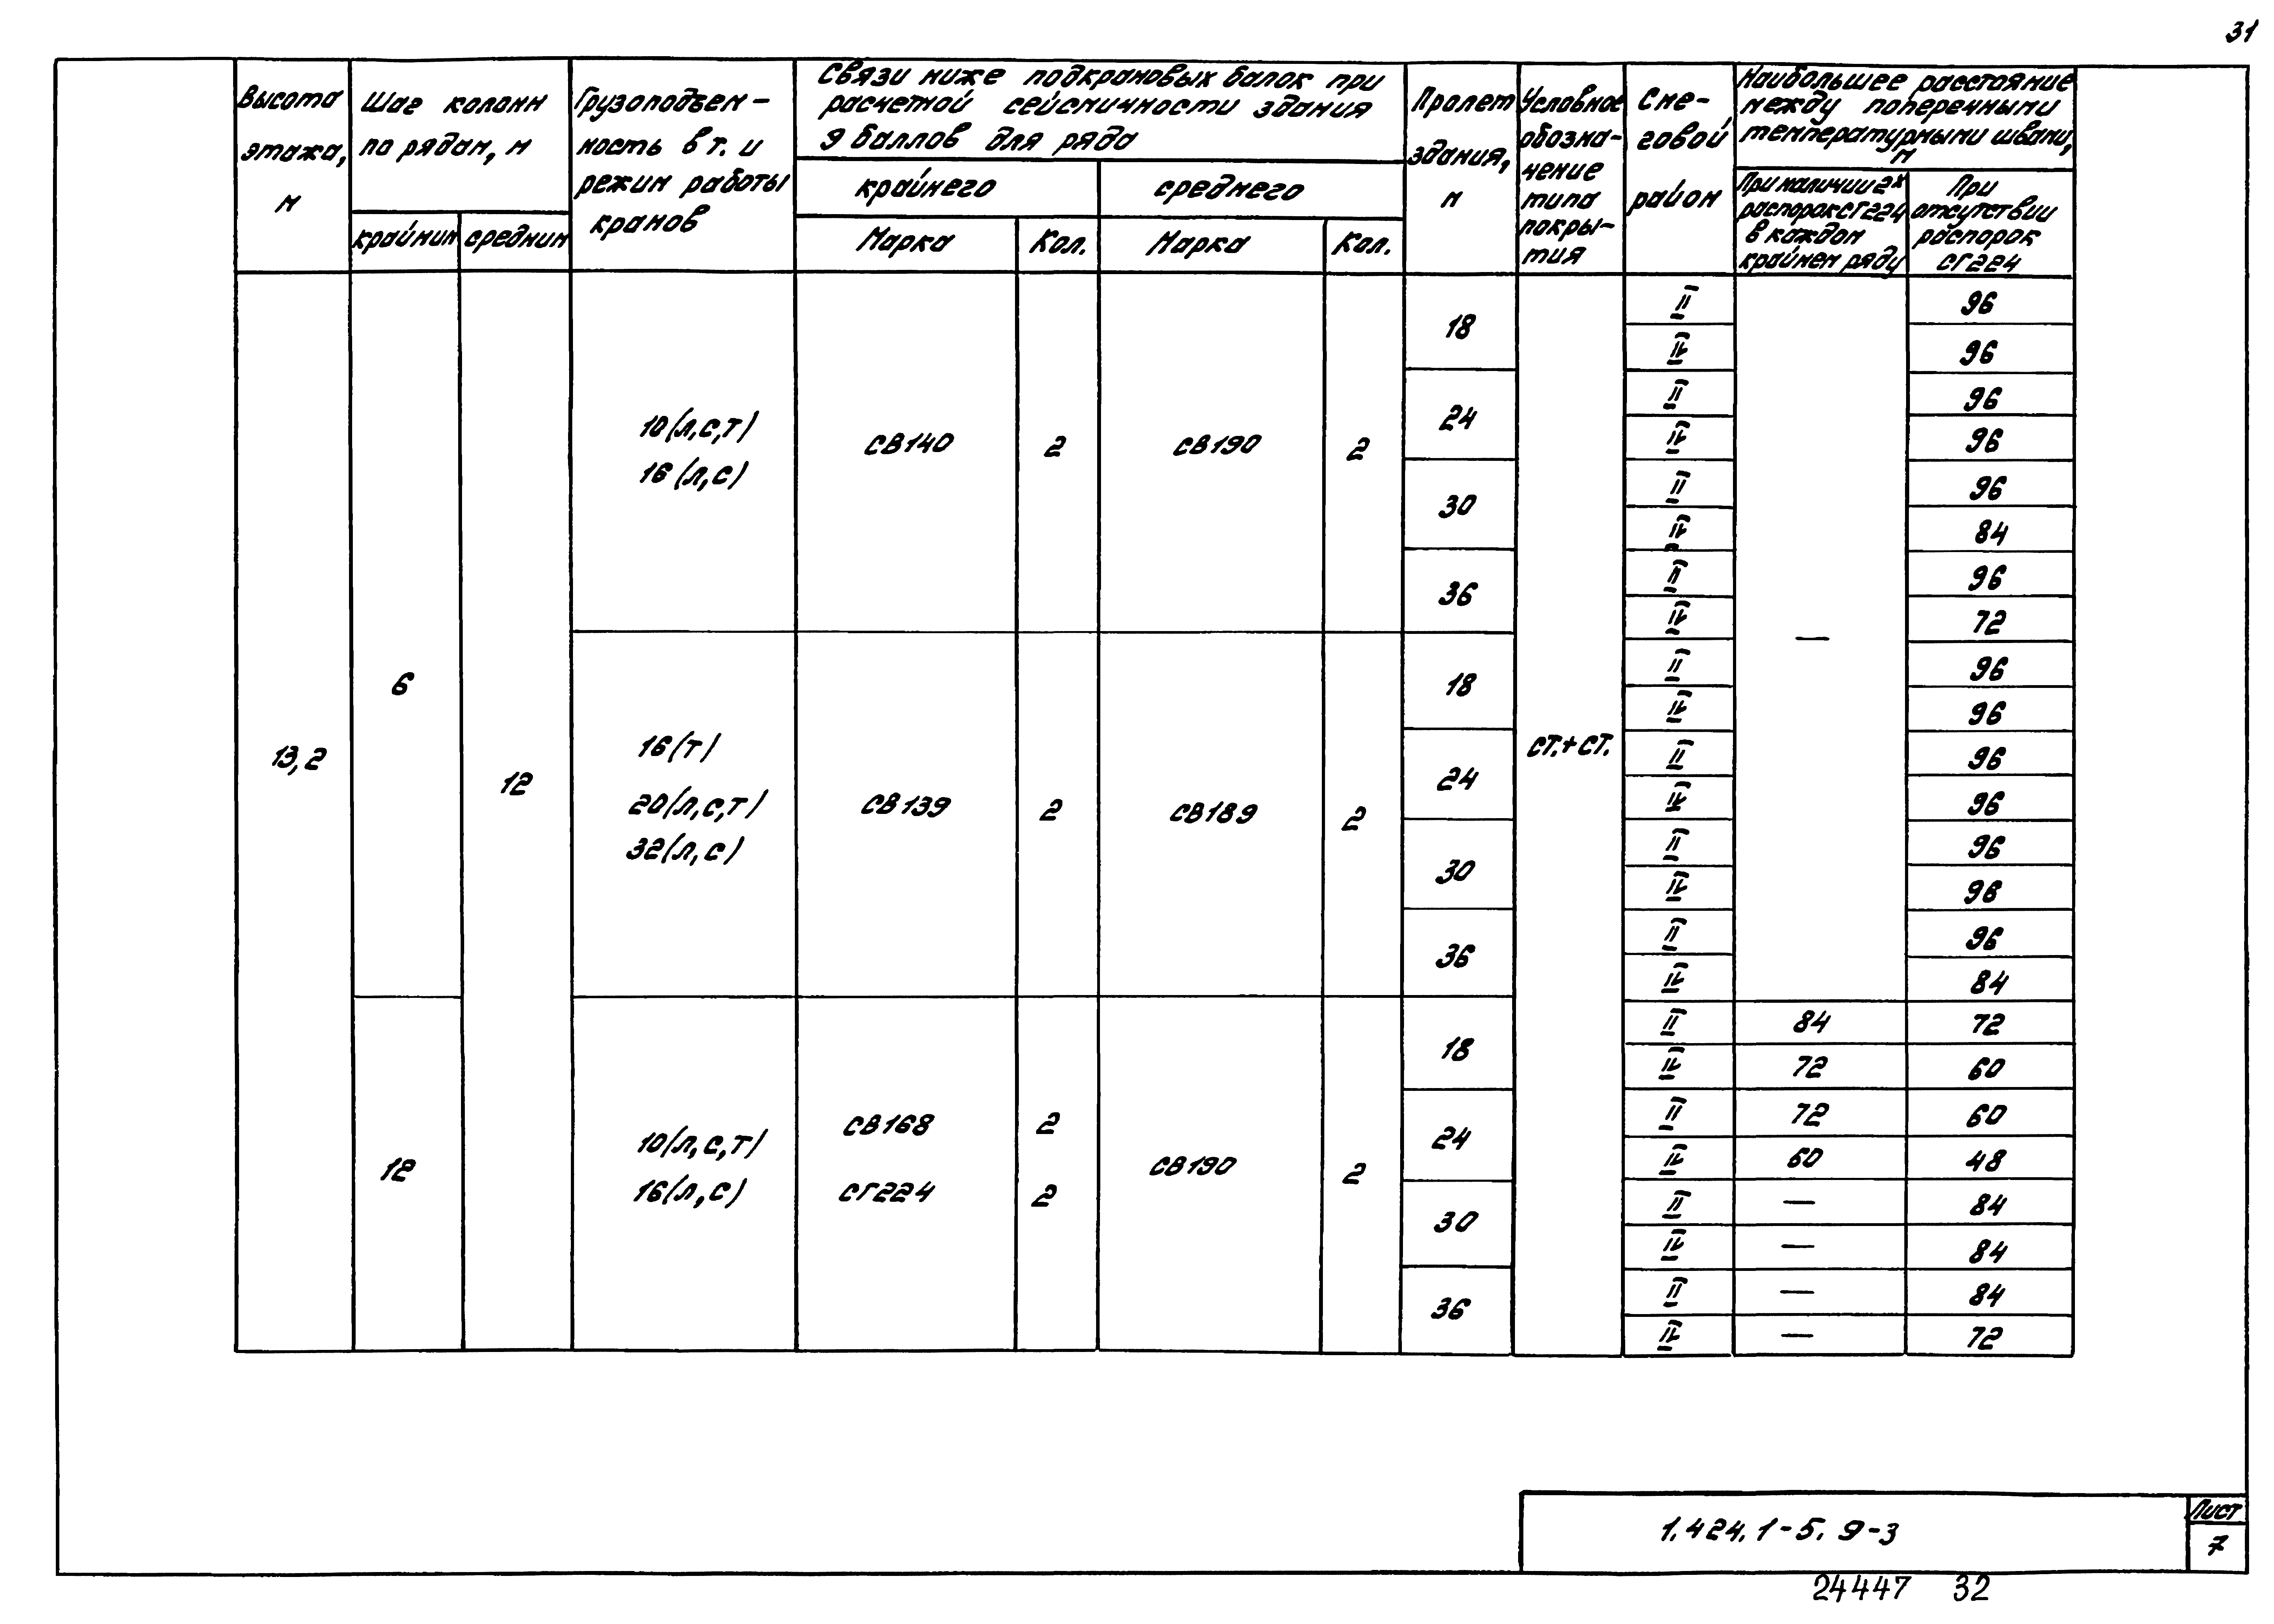 31
Высота
этажа,
м
Шаг колонн
по рядам, м
крайним
средним
Грузоподъем-
ность в т. и
режим работы
кранов
Связи ниже подкрановых балок при
расчетной сейсмичности здания
9 баллов для ряда
крайнего
среднего
Марка
Кол.
Марка
Кол.
Пролет
здания,
м
Условное
обозна-
чение
типа
покры-
тия
Сне-
говой
район
Наибольшее расстояние
между поперечными
температурными швами,
м
При наличии 2х
распорок СГ224
в каждом
крайнем ряду
При
отсутствии
распорок
СГ224
13,2
6
12
10(л,с,т)
16(л,с)
СВ140
2
СВ190
2
18
II
96
IV
96
24
II
96
IV
96
30
II
96
IV
84
36
II
96
IV
72
—
16(т)
20(л,с,т)
32(л,с)
СВ139
2
СВ189
2
СТ.+СТ.
18
II
96
IV
96
24
II
96
IV
96
30
II
96
IV
96
36
II
96
IV
84
12
10(л,с,т)
16(л,с)
СВ168
2
СГ224
2
СВ190
2
18
II
84
72
IV
72
60
24
II
72
60
IV
60
48
30
II
—
84
IV
—
84
36
II
—
84
IV
—
72
1.424.1-5.9-3
Лист
7
24447 32